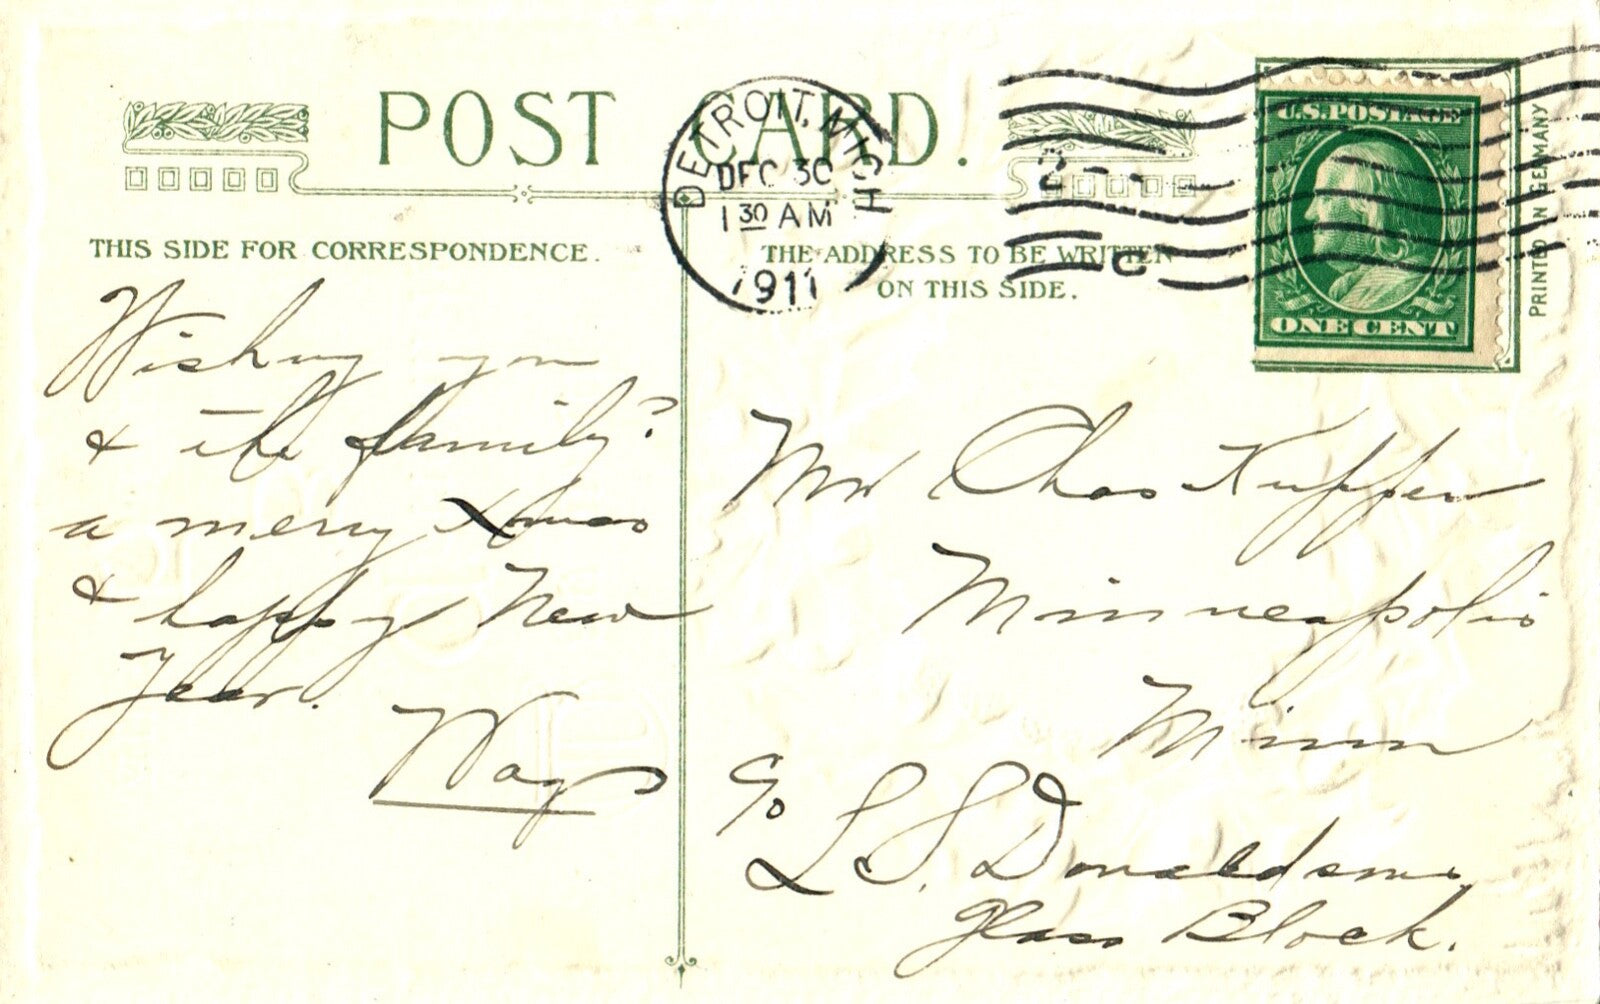 POST CARD.
DETROIT, MICH
DEC 30
1 30 AM
1911
U.S. POSTAGE
ONE CENT
PRINTED IN GERMANY
THIS SIDE FOR CORRESPONDENCE.
THE ADDRESS TO BE WRITTEN
ON THIS SIDE.
Wishing you
& the family?
a merry Xmas
& happy New
Year.
Mr Chas Kupper
Minneapolis
Minn
c/o
L. S. Donaldsons
Glass Block.